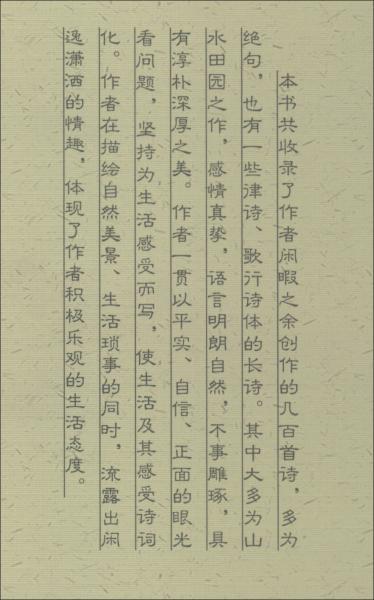 本书共收录了作者闲暇之余创作的几百首诗，多为
绝句，也有一些律诗、歌行诗体的长诗。其中大多为山
水田园之作，感情真挚，语言明朗自然，不事雕琢，具
有淳朴深厚之美。作者一贯以平实、自信、正面的眼光
看问题，坚持为生活感受而写，使生活及其感受诗词
化。作者在描绘自然美景、生活琐事的同时，流露出闲
逸潇洒的情趣，体现了作者积极乐观的生活态度。